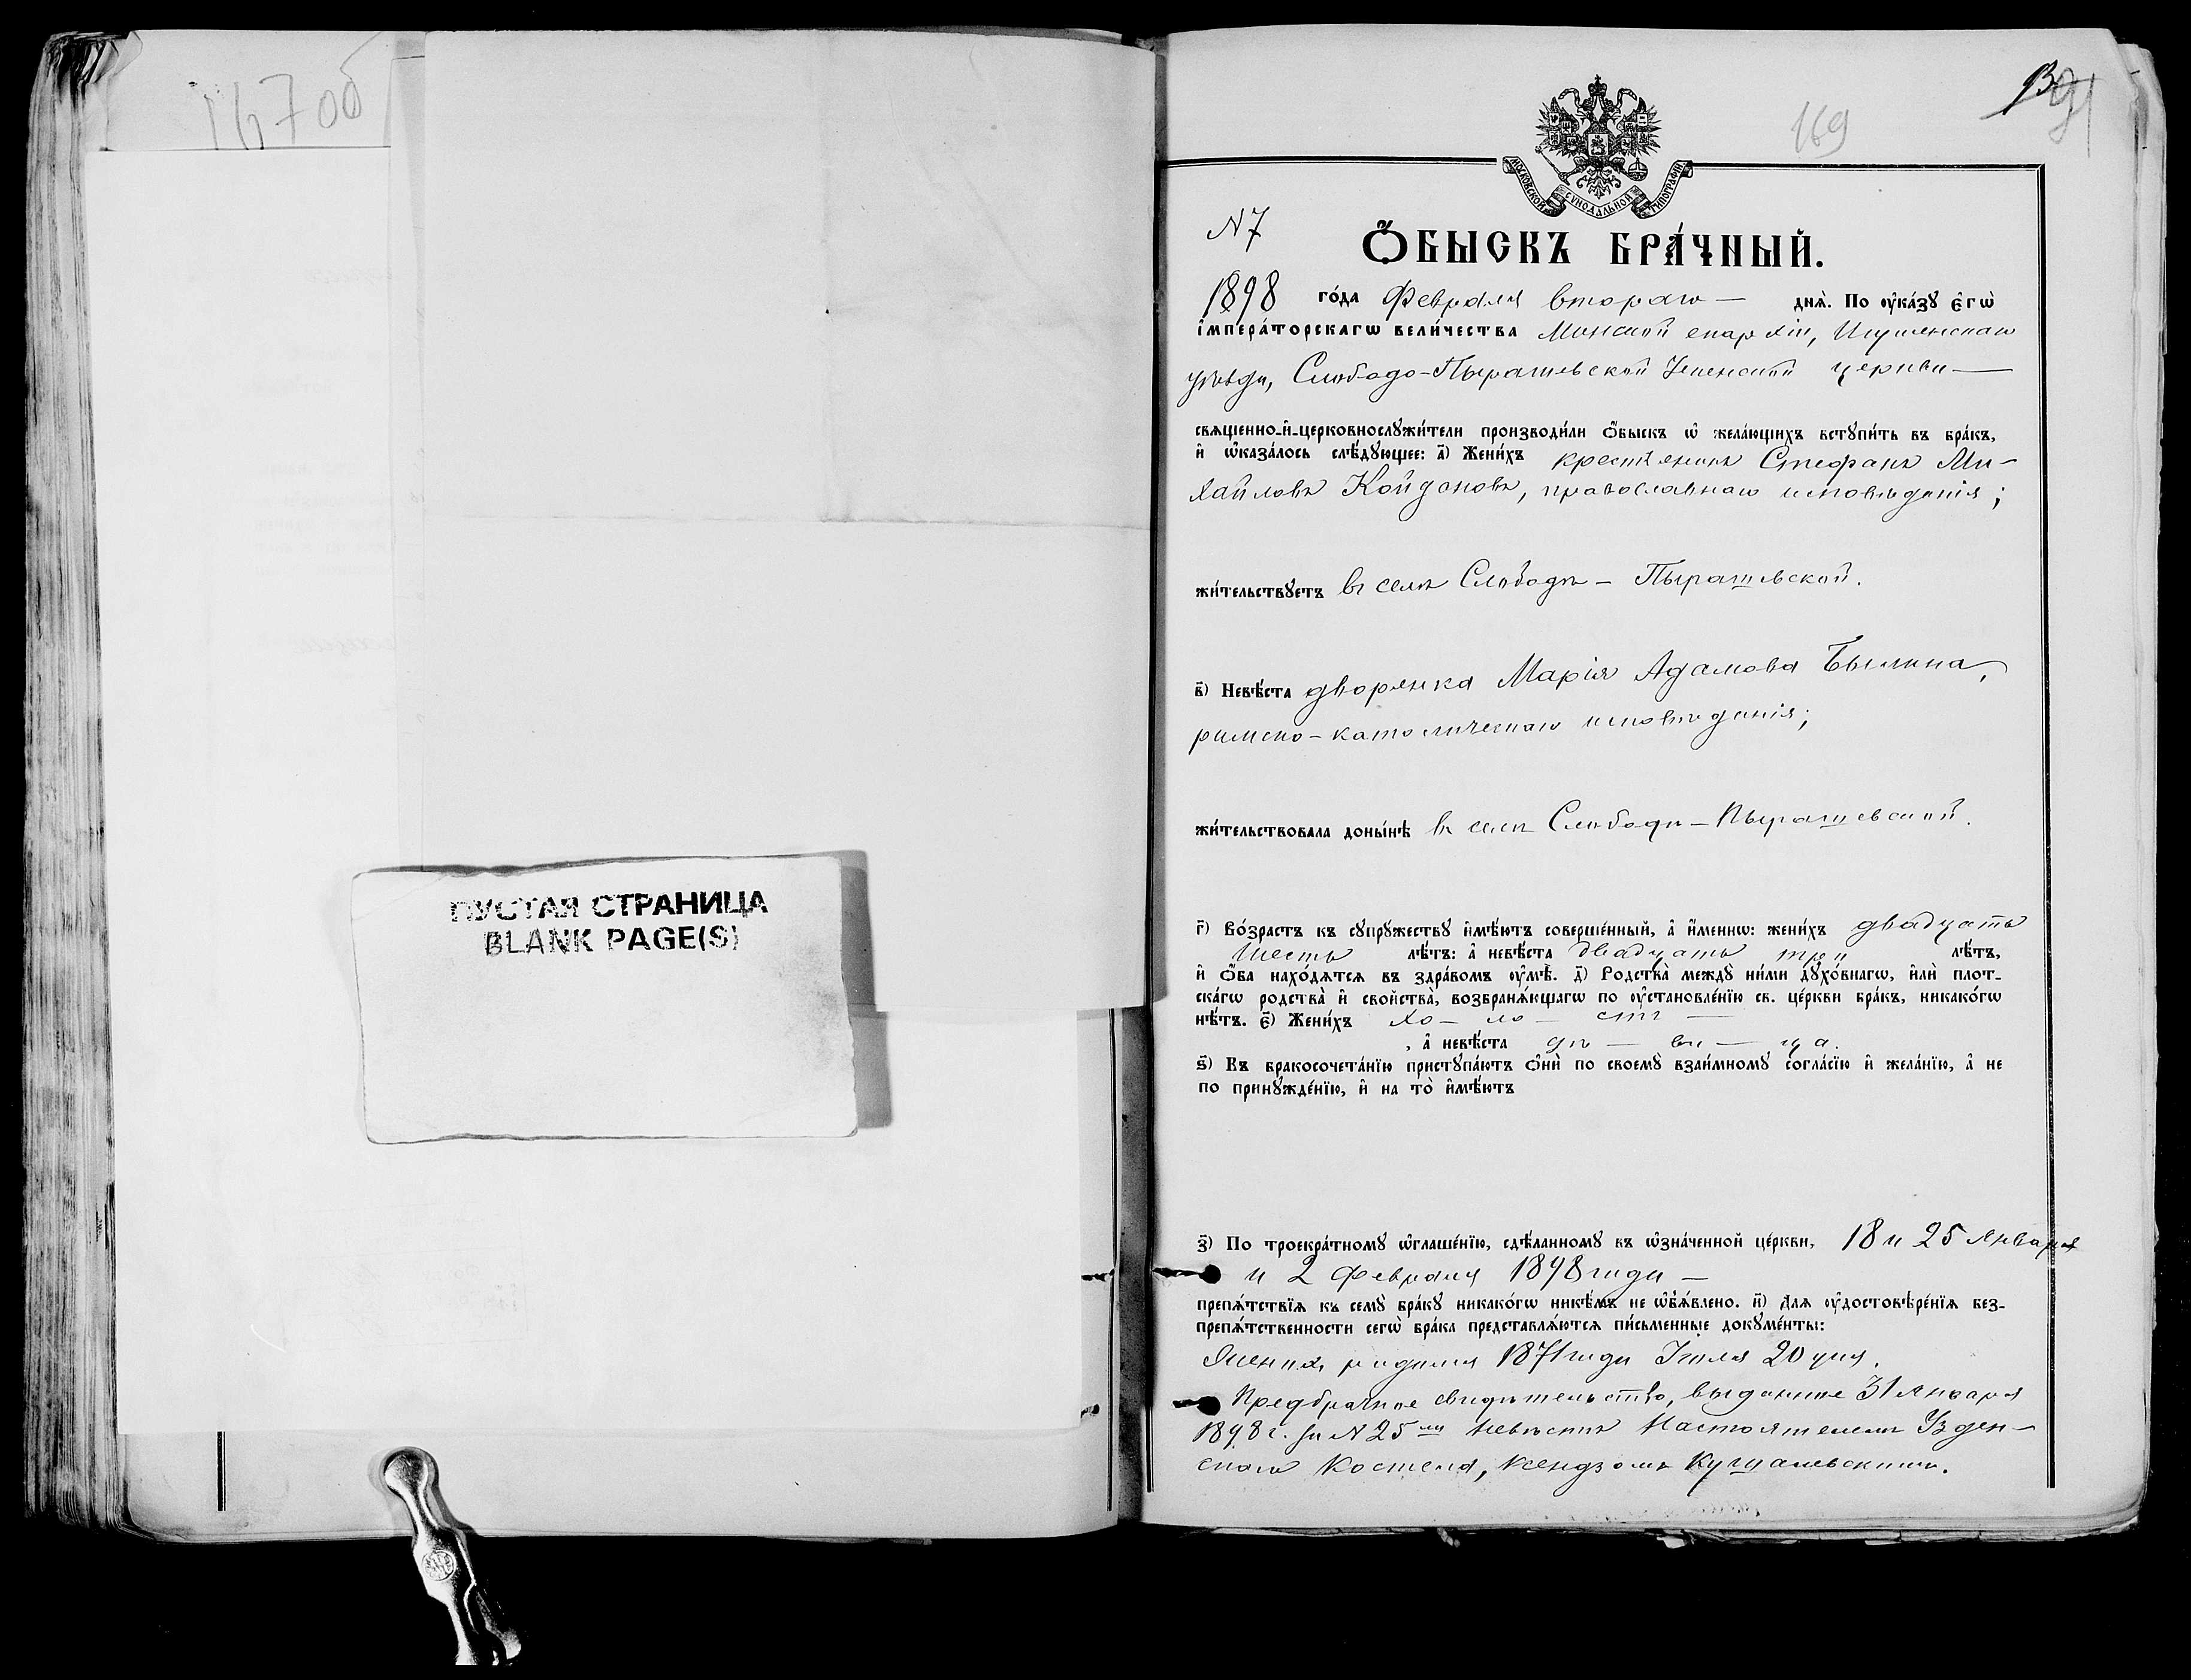 167об
ПУСТАЯ СТРАНИЦА
BLANK PAGE(S)
169
МОСКОВСКОЙ СѴНОДАЛЬНОЙ ТИПОГРАФІИ
N7
Ѻ҆БЫСКЪ БРА́ЧНЫЙ.
1898 го́да Февраля втораго — днѧ̀. По ᲂу҆ка́зꙋ є҆гѡ̀
і҆мпера́торскагѡ вели́чества Минской епархіи, Игуменскаго
уѣзда, Слободо-Пырашевской Успенской церкви —
свѧще́нно-и҆-церковнослꙋжи́тели производи́ли ѻ҆́быскъ ѡ҆ жела́ющихъ встꙋпи́ть въ бра́къ,
и҆ ѡ҆каза́лось слѣ́дꙋющее: а҃) Жени́хъ крестьянинъ Стефанъ Ми-
хайловъ Койдановъ, православнаго исповѣданія;
жи́тельствꙋетъ въ селѣ Слободѣ-Пырашевской.
в҃) Невѣ́ста дворянка Марія Адамова Былина,
римско-католическаго исповѣданія;
жи́тельствовала доны́нѣ въ селѣ Слободѣ-Пырашевской.
г҃) Во́зрастъ къ сꙋпрꙋ́жествꙋ и҆мѣ́ютъ соверше́нный, а҆ и҆́меннѡ: жени́хъ двадцать
шесть лѣ́тъ: а҆ невѣ́ста двадцать три лѣ́тъ,
и҆ ѻ҆́ба нахо́дѧтсѧ въ здра́вомъ ᲂу҆мѣ̀. д҃) Родства̀ междꙋ̀ ни́ми дꙋхо́внагѡ, и҆лѝ плот-
ска́гѡ родства̀ и҆ сво́йства̀, возбранѧ́ющагѡ по ᲂу҆становле́нїю св. це́ркви бра́къ, никако́гѡ
нѣ́тъ. є҃) Жени́хъ хо — ло — стъ —
, а҆ невѣ́ста дѣ — ви — ца.
ѕ҃) Къ бракосочета́нїю пристꙋпа́ютъ ѻ҆нѝ по своемꙋ̀ взаи́мномꙋ согла́сїю и҆ жела́нїю, а҆ не
по принꙋжде́нїю, и҆ на то̀ и҆мѣ́ютъ
з҃) По троекра́тномꙋ ѡ҆глаше́нїю, сдѣ́ланномꙋ въ ѡ҆зна́ченной це́ркви, 18 и 25 Января
и 2 Февраля 1898 года —
препѧ́тствїѧ къ семꙋ̀ бра́кꙋ никако́гѡ никѣ́мъ не ѡ҆бъѧ́влено. и҃) Длѧ ᲂу҆достовѣре́нїѧ без-
препѧ́тственности сегѡ̀ бра́ка представлѧ́ютсѧ пи́сьменные докꙋме́нты:
Женихъ родился 1871 года Іюля 20 дня.
Предбрачное свидѣтельство, выданное 31 Января
1898 г. за N 25 ᵐᵘ невѣстѣ Настоятелемъ Узден-
скаго Костела, ксендзомъ Кушалевскимъ.